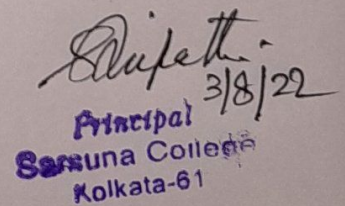 3/8/22
Principal
Sarsuna College
Kolkata-61